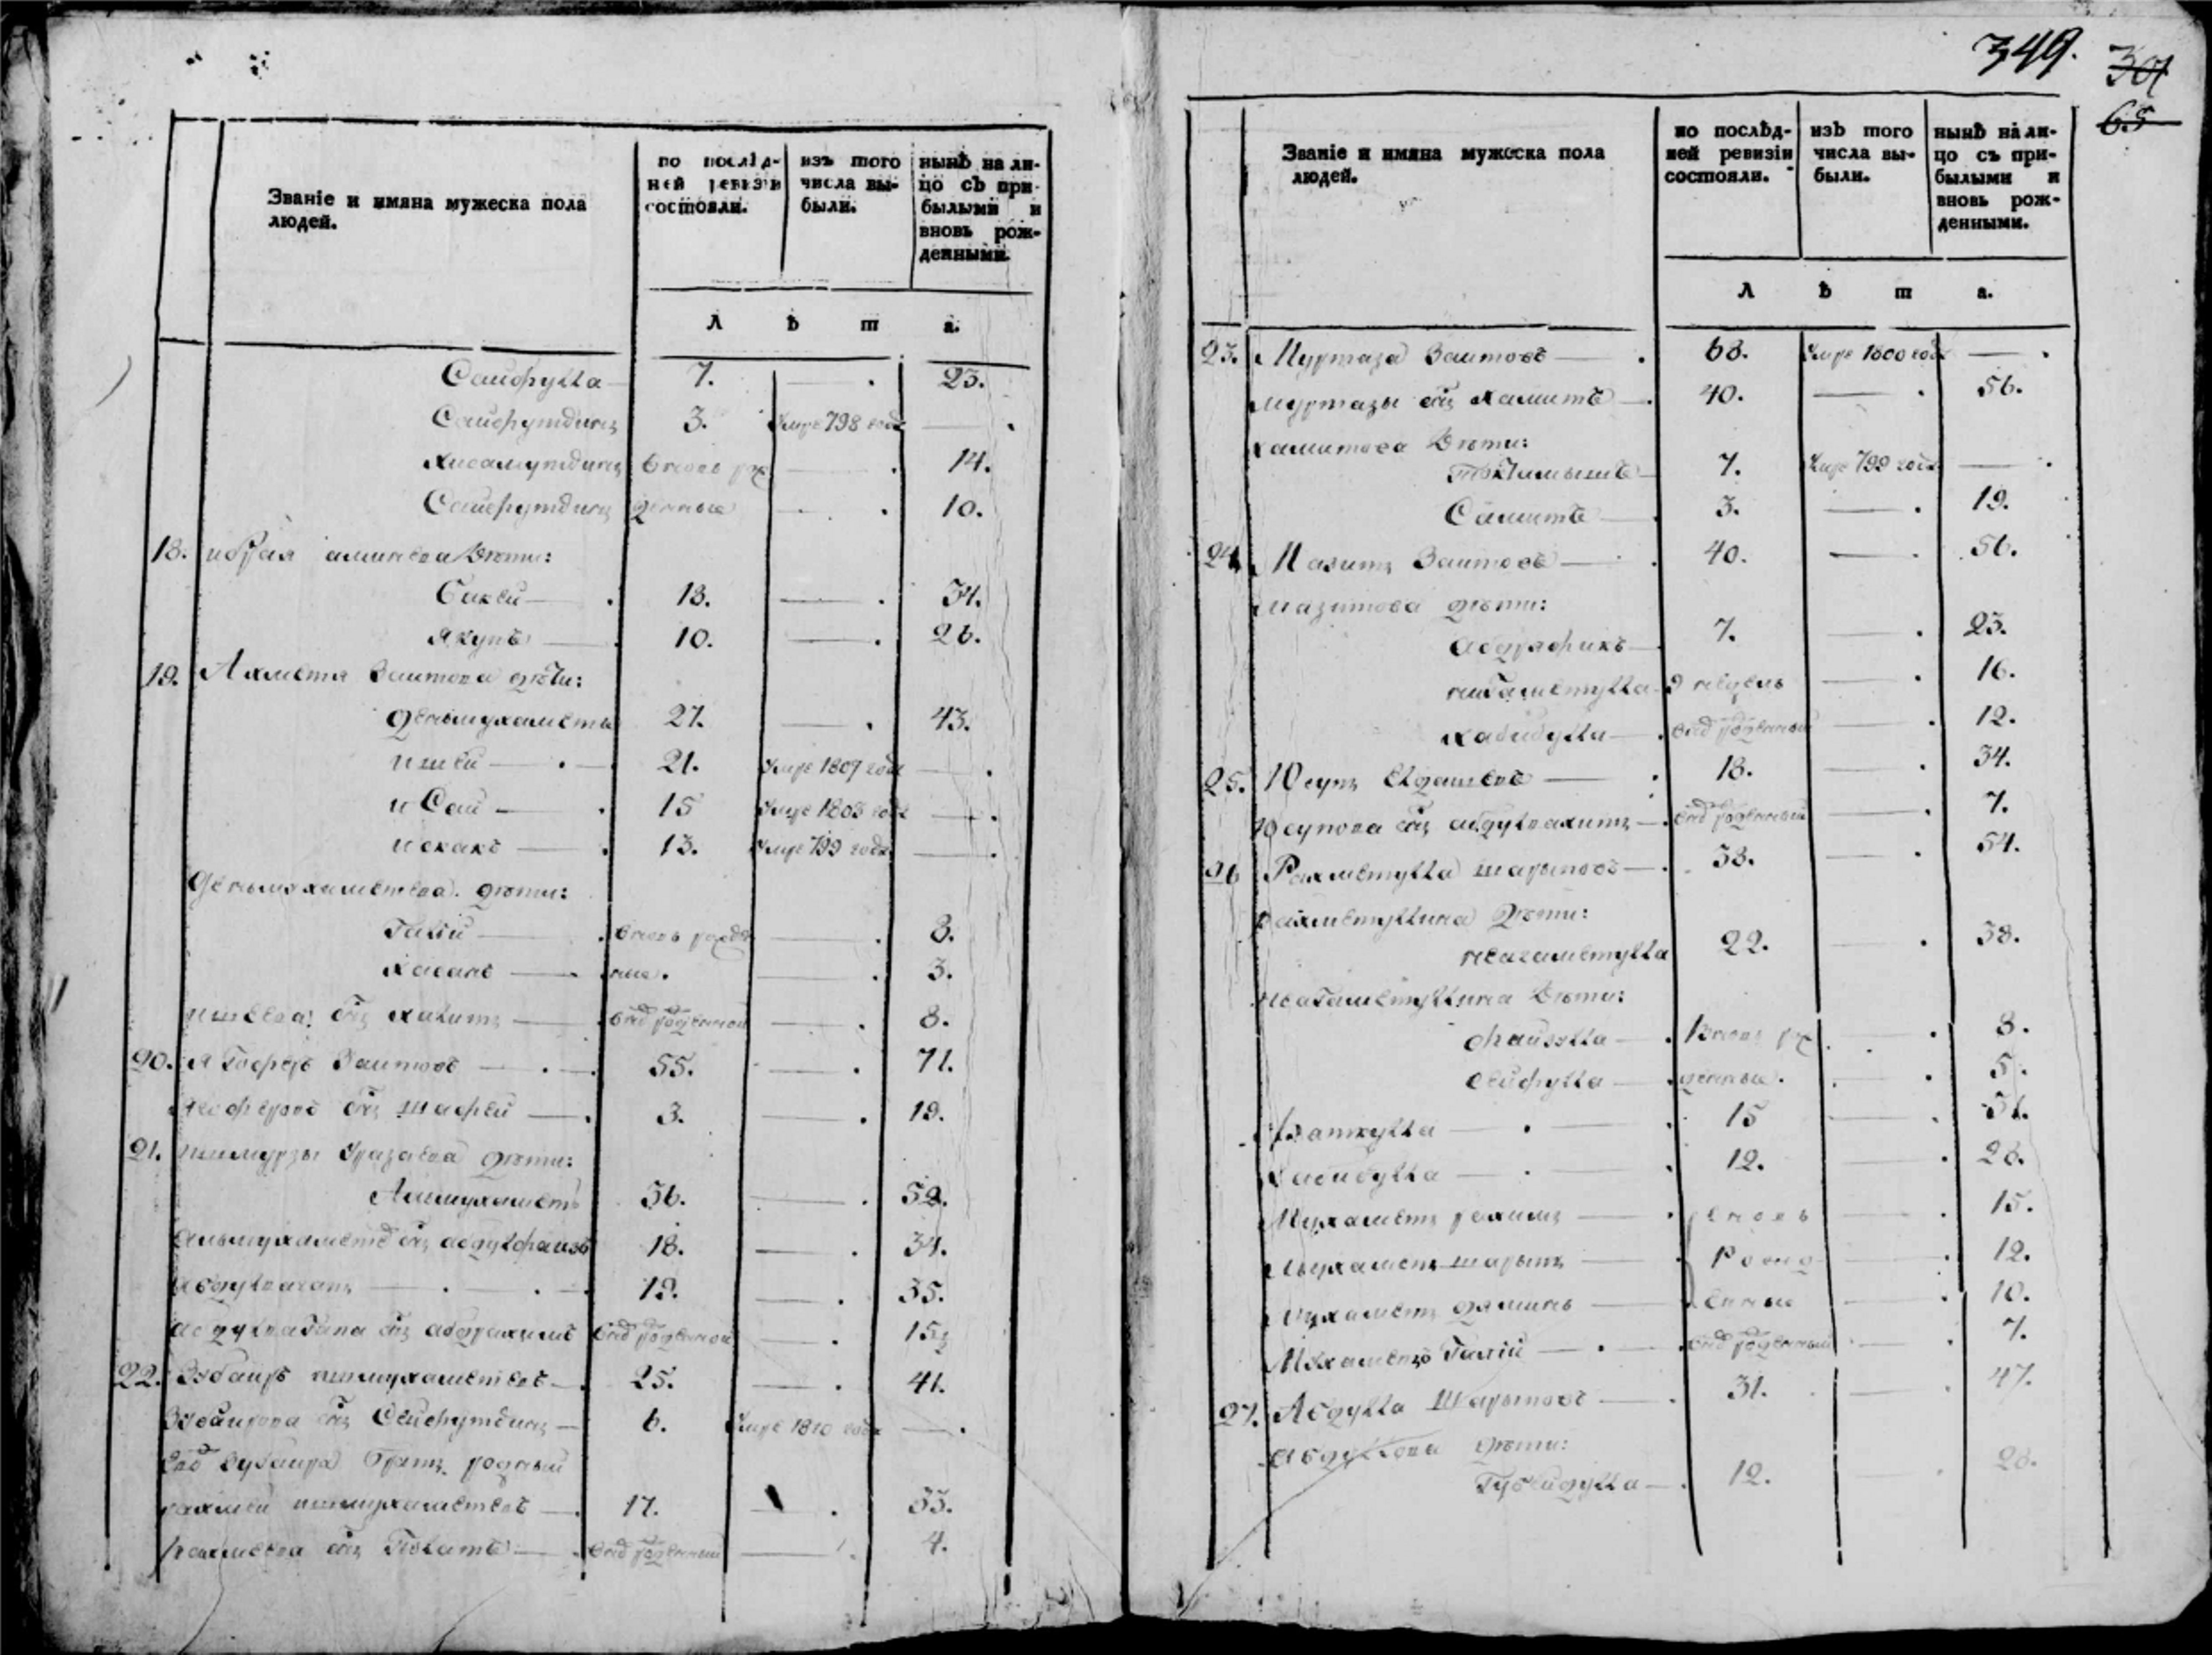 349.
301
65
Званіе и имяна мужеска пола людей.
по послѣдней ревизіи состояли.
изъ того числа выбыли.
нынѣ на лицо съ прибылыми и вновь рожденными.
Л ѣ т а.
Сайфулла 7. — 23.
Сайфутдинъ 3. умре 798 года —
Хисамутдинъ вновь рож 14.
Сайфутдинъ денные 10.
18. дѣти:
13. — 34.
Якупъ 10. — 26.
19. Ахметя Заитова дѣти:
Денмухаметъ 27. — 43.
Ишей 21. умре 1807 года —
Исай 15 умре 1803 года —
Исхакъ 13. умре 799 года —
Денмухаметева дѣти:
Галій вновь рожде — 8.
Хасанъ ные. — 3.
Ишеева сынъ Халитъ внов рожденной — 8.
20. Ягоферъ Заитовъ — 55. — 71.
Ягоферовъ сынъ Шафей — 3. — 19.
21. Ишмурзы Уразаева дѣти:
36. — 52.
сынъ 18. — 34.
19. — 35.
сынъ внов рожденной — 15
22. Зубаиръ Ишмухаметевъ 25. — 41.
Зубаирова сынъ Сейфутдинъ — 6. умре 1810 года —
Зубаира братъ родный
Рахмей Ишмухаметевъ — 17. — 33.
Рахмеева сынъ внов рожденный — 4.
Званіе и имяна мужеска пола людей.
по послѣдней ревизіи состояли.
изъ того числа выбыли.
нынѣ на лицо съ прибылыми и вновь рожденными.
Л ѣ т а.
23. Муртаза Заитовъ — 68. умре 1800 года —
Муртазы сынъ Хамитъ — 40. — 56.
Хамитова дѣти:
Токтамышъ 7. умре 799 года —
Самитъ — 3. — 19.
24. Мазитъ Заитовъ — 40. — 56.
Мазитова дѣти:
7. — 23.
9 недель — 16.
Хабибулла — внов рожденный — 12.
25. Юсупъ — 18. — 34.
Юсупова сынъ внов рожденный — 7.
26 Рахметулла Шарыповъ — 38. — 54.
Рахметуллина дѣти:
Неагаметулла 22. — 38.
Неагаметуллина дѣти:
Файзулла — вновь рож — 8.
Сейфулла — денные. — 5.
15 — 31.
Хабибулла — 12. — 28.
Мухаметъ Рахимъ — вновь — 15.
Мухаметъ Шарыпъ — рожд — 12.
Мухаметъ — енные — 10.
Мухаметъ Галій — внов рожденный — 7.
27. Абдулла Шарыповъ — 31. — 47.
Абдуллова дѣти:
Губейдулла — 12. — 28.